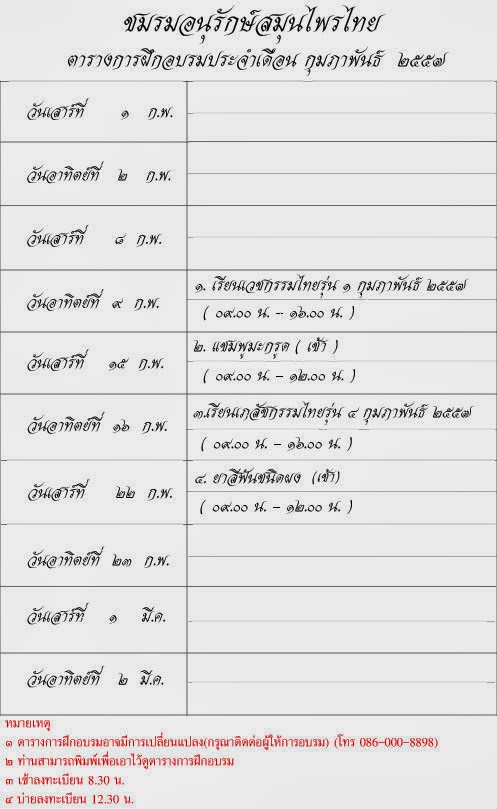 ชมรมอนุรักษ์สมุนไพรไทย
ตารางการฝึกอบรมประจำเดือน กุมภาพันธ์ ๒๕๕๗
วันเสาร์ที่ ๑ ก.พ.
วันอาทิตย์ที่ ๒ ก.พ.
วันเสาร์ที่ ๘ ก.พ.
วันอาทิตย์ที่ ๙ ก.พ.
๑. เรียนเวชกรรมไทยรุ่น ๑ กุมภาพันธ์ ๒๕๕๗
( ๐๙.๐๐ น. - ๑๖.๐๐ น. )
วันเสาร์ที่ ๑๕ ก.พ.
๒. แชมพูมะกรูด ( เช้า )
( ๐๙.๐๐ น. - ๑๒.๐๐ น. )
วันอาทิตย์ที่ ๑๖ ก.พ.
๓.เรียนเภสัชกรรมไทยรุ่น ๔ กุมภาพันธ์ ๒๕๕๗
( ๐๙.๐๐ น. - ๑๖.๐๐ น. )
วันเสาร์ที่ ๒๒ ก.พ.
๔. ยาสีฟันชนิดผง (เช้า)
( ๐๙.๐๐ น. - ๑๒.๐๐ น. )
วันอาทิตย์ที่ ๒๓ ก.พ.
วันเสาร์ที่ ๑ มี.ค.
วันอาทิตย์ที่ ๒ มี.ค.
หมายเหตุ
๑ ตารางการฝึกอบรมอาจมีการเปลี่ยนแปลง(กรุณาติดต่อผู้ให้การอบรม) (โทร 086-000-8898)
๒ ท่านสามารถพิมพ์เพื่อเอาไว้ดูตารางการฝึกอบรม
๓ เช้าลงทะเบียน 8.30 น.
๔ บ่ายลงทะเบียน 12.30 น.